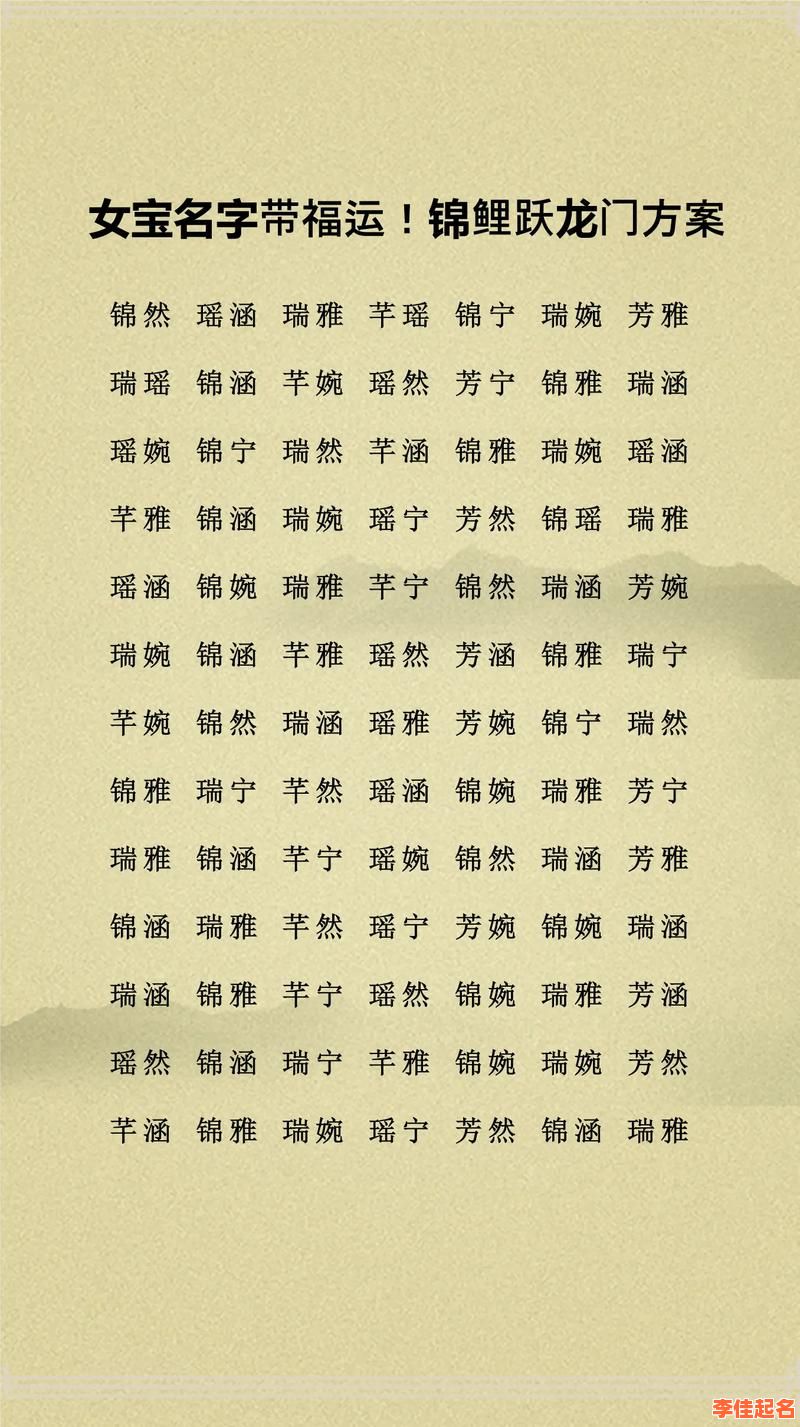 女宝名字带福运！锦鲤跃龙门方案
锦然 瑶涵 瑞雅 芊瑶 锦宁 瑞婉 芳雅
瑞瑶 锦涵 芊婉 瑶然 芳宁 锦雅 瑞涵
瑶婉 锦宁 瑞然 芊涵 锦雅 瑞婉 瑶涵
芊雅 锦涵 瑞婉 瑶宁 芳然 锦瑶 瑞雅
瑶涵 锦婉 瑞雅 芊宁 锦然 瑞涵 芳婉
瑞婉 锦涵 芊雅 瑶然 芳涵 锦雅 瑞宁
芊婉 锦然 瑞涵 瑶雅 芳婉 锦宁 瑞然
锦雅 瑞宁 芊然 瑶涵 锦婉 瑞雅 芳宁
瑞雅 锦涵 芊宁 瑶婉 锦然 瑞涵 芳雅
锦涵 瑞雅 芊然 瑶宁 芳婉 锦婉 瑞涵
瑞涵 锦雅 芊宁 瑶然 锦婉 瑞雅 芳涵
瑶然 锦涵 瑞宁 芊雅 锦婉 瑞婉 芳然
芊涵 锦雅 瑞婉 瑶宁 芳然 锦涵 瑞雅
李佳起名